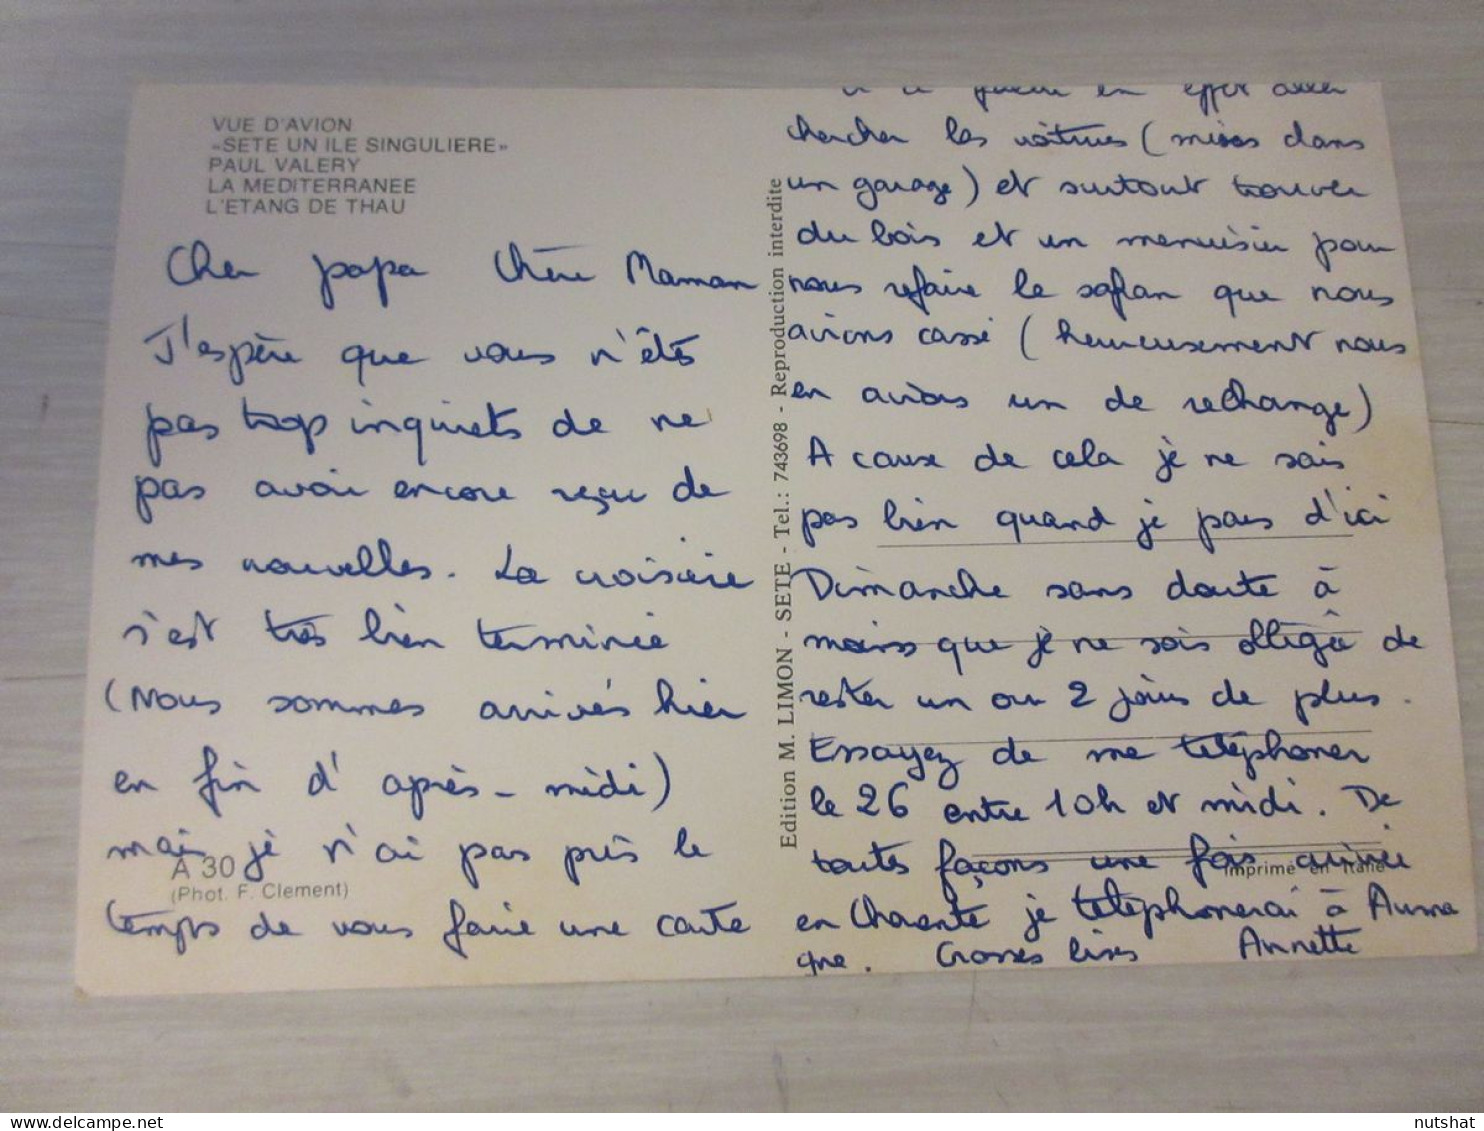 VUE D'AVION
«SETE UN ILE SINGULIERE»
PAUL VALERY
LA MEDITERRANEE
L'ETANG DE THAU
Cher papa Chère Maman
J'espère que vous n'êtes
pas trop inquiets de ne
pas avoir encore reçu de
mes nouvelles. La croisière
s'est très bien terminée
(Nous sommes arrivés hier
en fin d'après-midi)
mais je n'ai pas pris le
temps de vous faire une carte
A 30
(Phot. F. Clement)
Edition M. LIMON - SETE - Tel.: 743698 - Reproduction interdite
en effet aller
chercher les voitures (mises dans
un garage) et surtout trouver
du bois et un menuisier pour
nous refaire le safran que nous
avions cassé (heureusement nous
en avions un de rechange)
A cause de cela je ne sais
pas bien quand je pars d'ici
Dimanche sans doute à
moins que je ne sois obligée de
rester un ou 2 jours de plus.
Essayez de me telephoner
le 26 entre 10h et midi. De
toutes façons une fois arrivée
Imprimé en Italie
en Charente je telephonerai à
que. Grosses bises Annette
nutshat